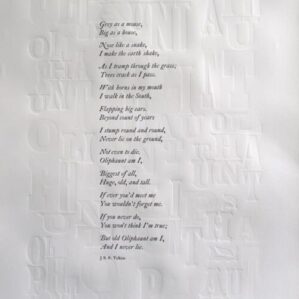 Grey as a mouse,
Big as a house,
Nose like a snake,
I make the earth shake,
As I tramp through the grass;
Trees crack as I pass.
With horns in my mouth
I walk in the South,
Flapping big ears.
Beyond count of years
I stump round and round,
Never lie on the ground,
Not even to die.
Oliphaunt am I,
Biggest of all,
Huge, old, and tall.
If ever you'd meet me
You wouldn't forget me.
If you never do,
You won't think I'm true;
But old Oliphaunt am I,
And I never lie.
J. R. R. Tolkien